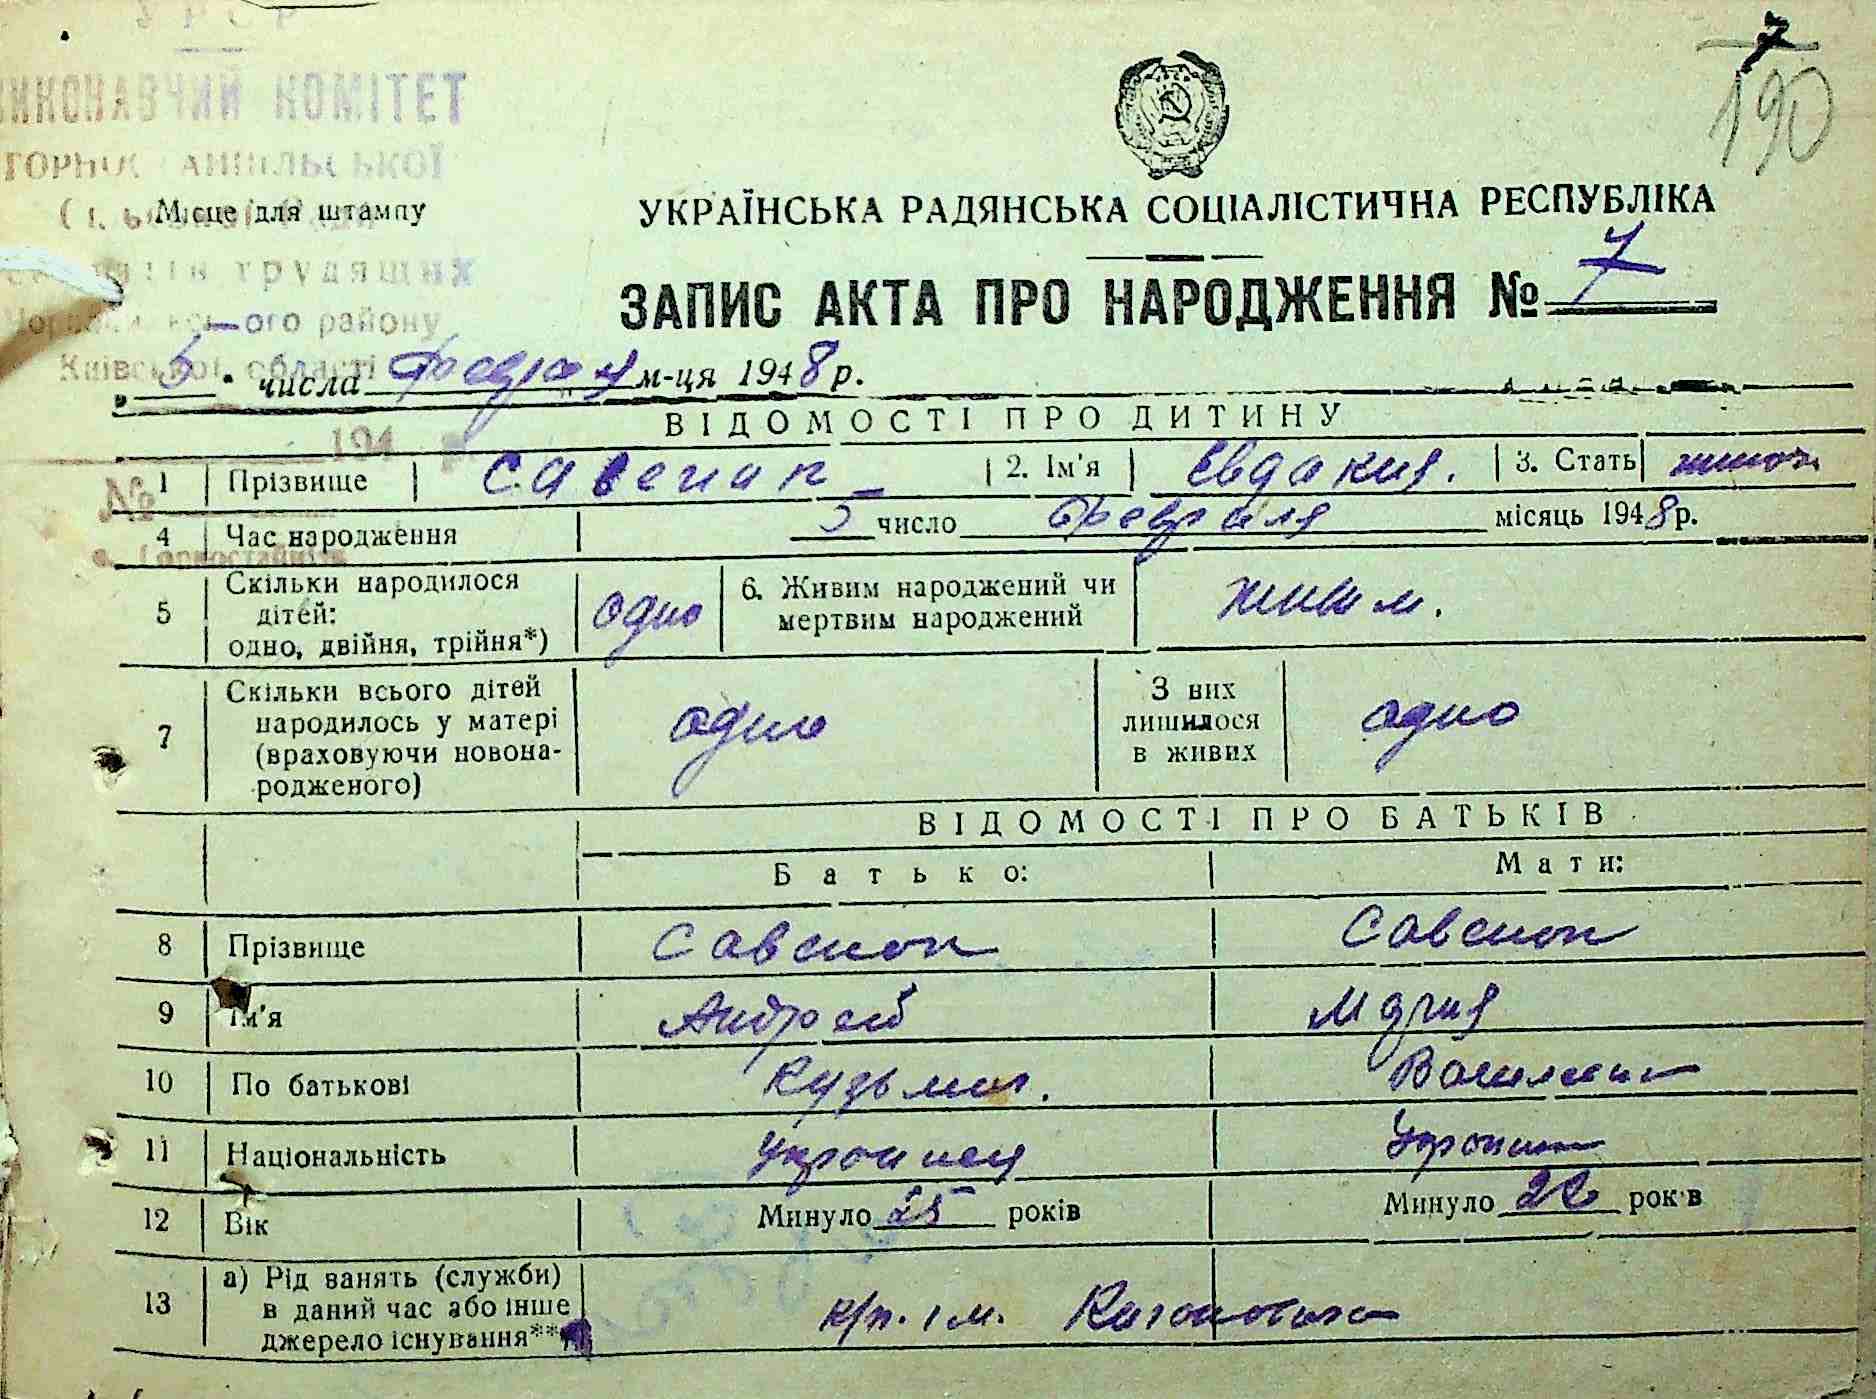 У Р С Р
ВИКОНАВЧИЙ КОМІТЕТ
ГОРНОСТАЙПІЛЬСЬКОЇ
Місце для штампу
трудящих
ого району
Київської області
194 р.
№
7
190
УКРАЇНСЬКА РАДЯНСЬКА СОЦІАЛІСТИЧНА РЕСПУБЛІКА
ЗАПИС АКТА ПРО НАРОДЖЕННЯ № 7
5 числа Февраля м-ця 1948 р.
ВІДОМОСТІ ПРО ДИТИНУ
1 Прізвище Савенак 2. Ім'я Евдакия. 3. Стать
4 Час народження 5 число Февраля місяць 1948 р.
5 Скільки народилося
дітей:
одно, двійня, трійня*)
одно
6. Живим народжений чи
мертвим народжений
живим.
7 Скільки всього дітей
народилось у матері
(враховуючи новона-
родженого)
одно
З них
лишилося
в живих
одно
ВІДОМОСТІ ПРО БАТЬКІВ
Батько: Мати:
8 Прізвище Савенок Савенок
9 Ім'я Андрей Мария
10 По батькові Кузьмич.
11 Національність Украинец
12 Вік Минуло 25 років Минуло рок в
13 а) Рід занять (служби)
в даний час або інше
джерело існування**)
к/п. ім. Кагановича